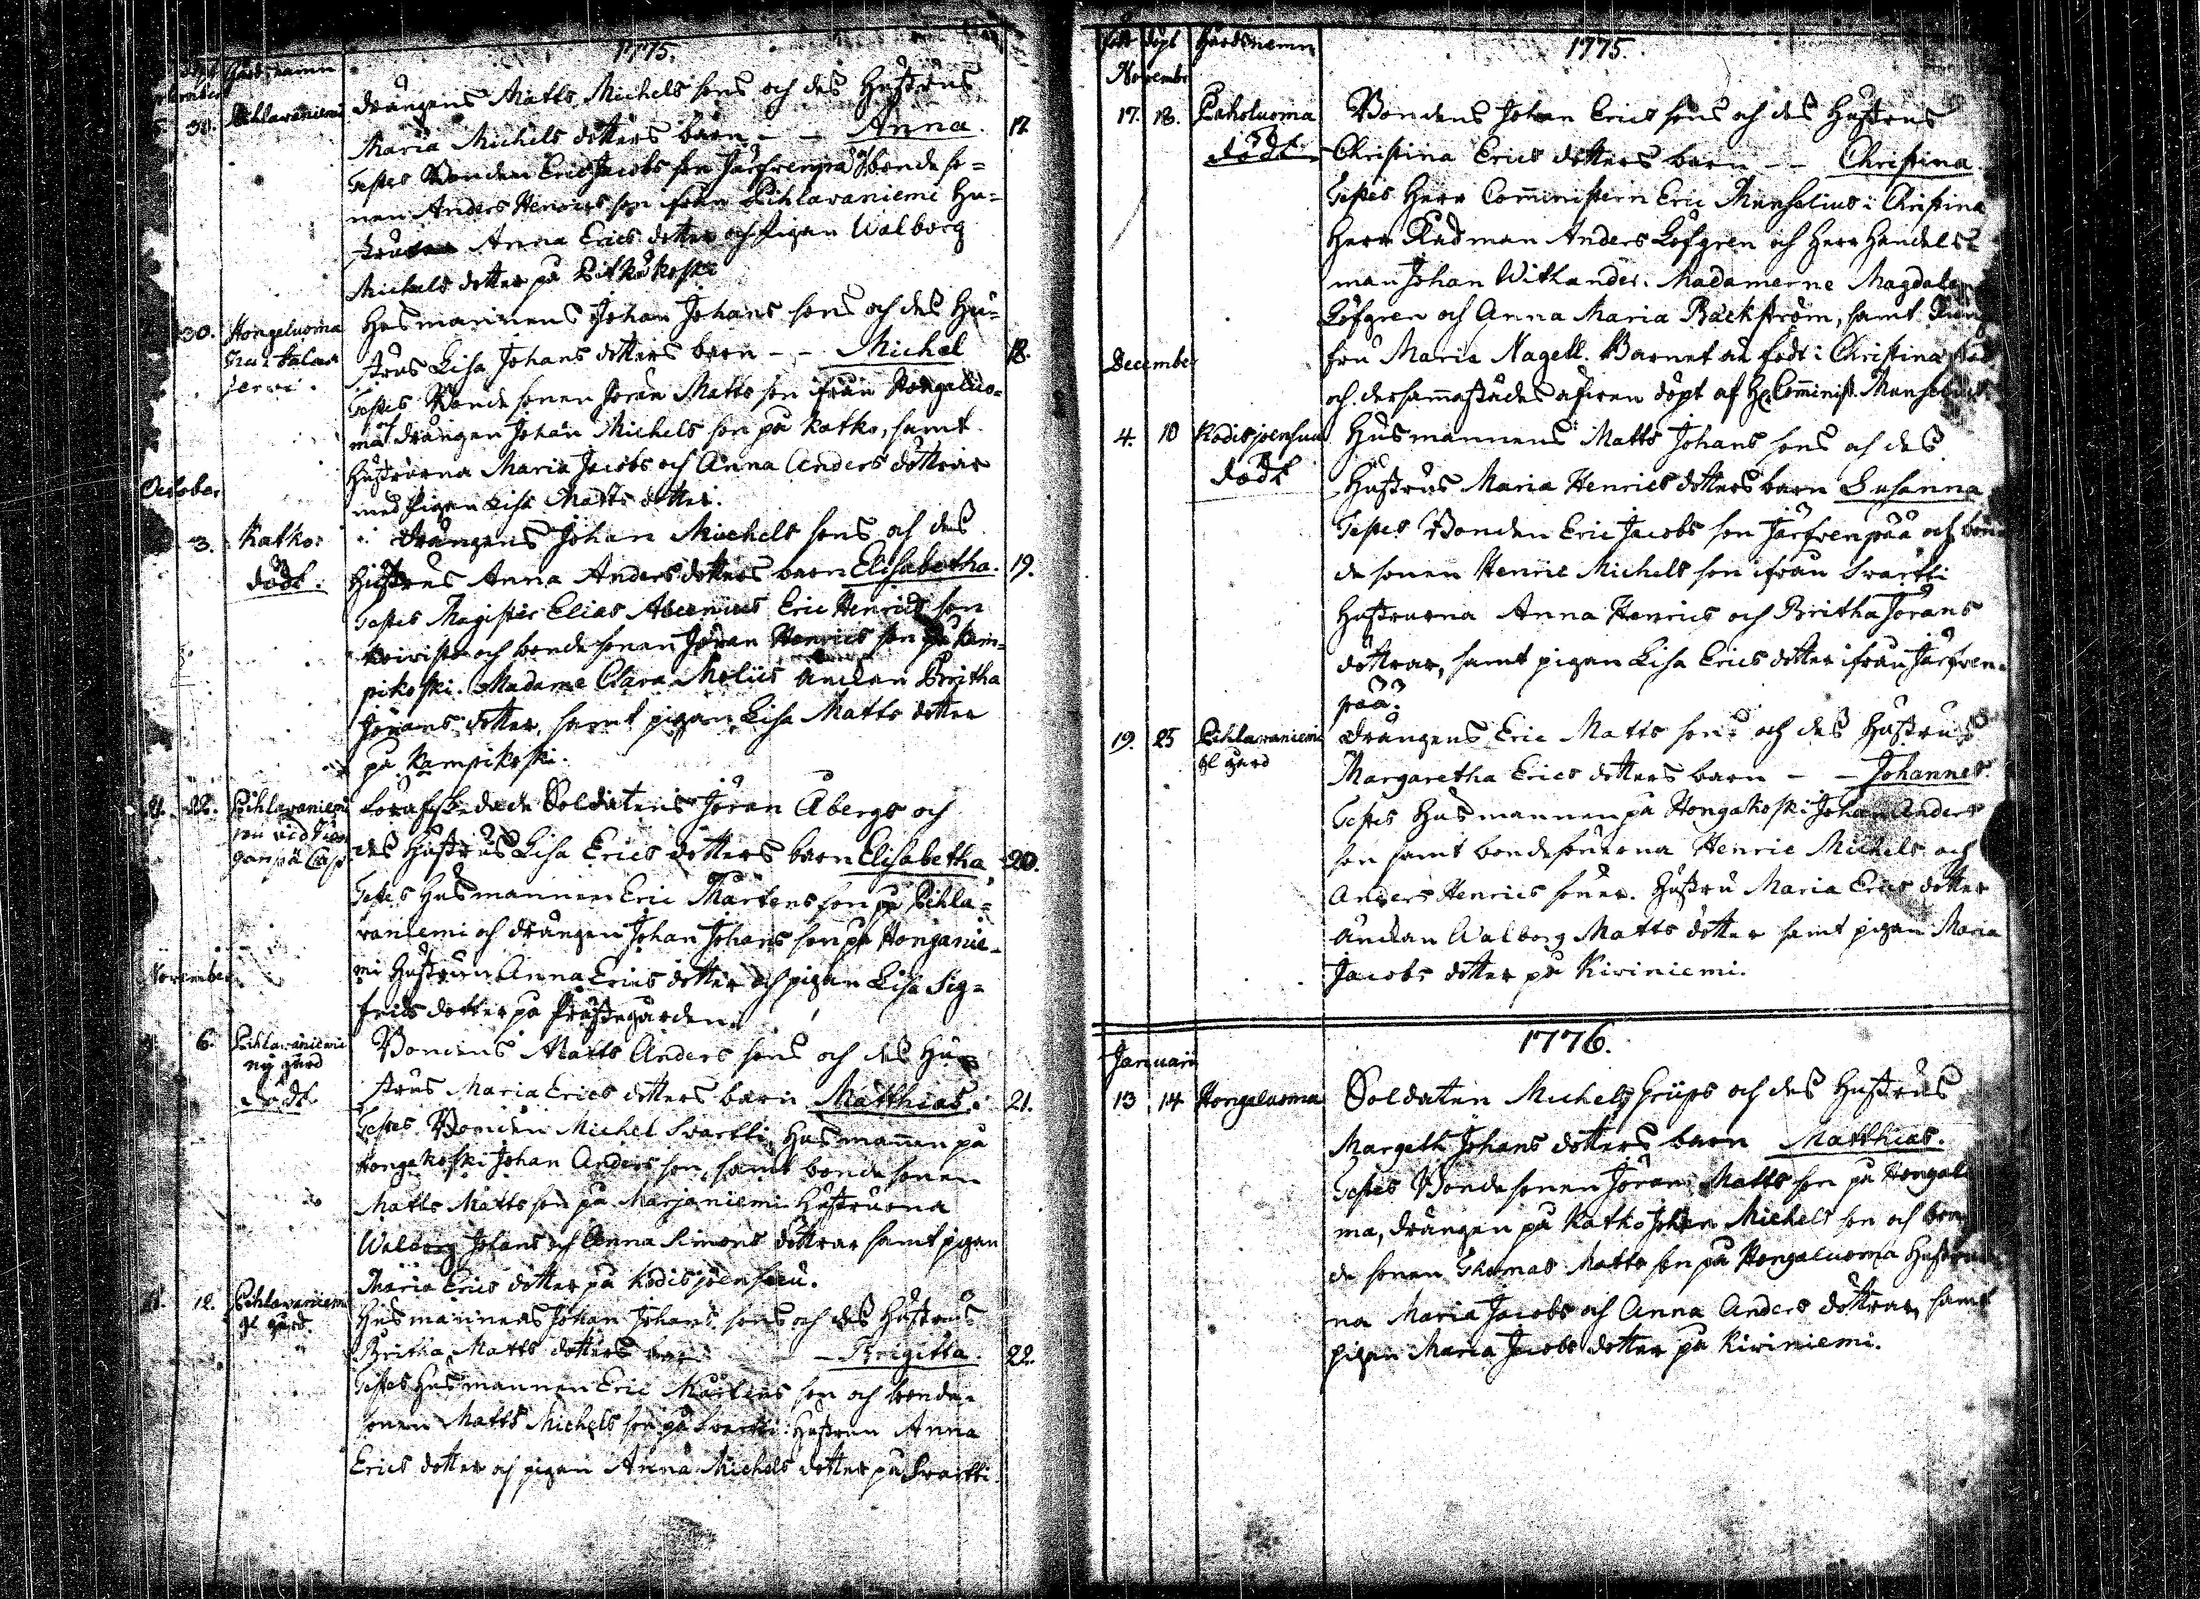 1775.
Gårds namn
September
30. Pihlavaniemi
Drängens Matts Michels sons och des Hustrus
Maria Michels dotters barn - - Anna. 17.
Testes Bonden Eric Jacobs son Järfvenpä och bonde so=
nen Anders Henrics son från Pihlavaniemi Hu=
strun Anna Erics dotter och Pigan Walborg
Michels dotter på Pitkäkoski
30. Hongeluoma
Husmannens Johan Johans sons och des Hu=
strus Lisa Johans dotters barn - - Michel 18.
Testes Bonde sonen Jöran Matts son ifrån Hongaluo=
ma och drängen Johan Michels son på Katko, samt
Hustrurna Maria Jacobs och Anna Anders döttrar
med Pigan Lisa Matts dotter.
October
3. Katko.
död.
Drängens Johan Michels sons och des
Hustrus Anna Anders dotters barn Elisabetha. 19.
Testes Magister Elias Alcenius Eric Henrics son
Koivisto och bonde sonen Jöran Henrics son på Kam=
pikoski. Madame Clara Melius Enckan Britha
Jörans dotter, samt pigan Lisa Matts dotter
på Kampikoski.
21. 22. Pihlavaniemi
Förafskedade Soldatens Jöran Åbergs och
des Hustrus Lisa Erics dotters barn Elisabetha 20.
Testes Husmannen Eric Mårtens son på Pihla=
vaniemi och drängen Johan Johans son på Honganie=
mi Hustrun Anna Erics dotter och pigan Lisa Sig=
frids dotter på Prästegården.
November
6. Pihlavaniemi
ny gård
död
Bondens Matts Anders sons och des Hu=
strus Maria Erics dotters barn Matthias. 21.
Testes Bonden Michel Svartti, Husmannen på
Hongakoski Johan Anders son, samt bonde sonen
Matts Matts son på Marjaniemi Hustrurna
Walborg Johans och Anna Simons döttrar samt pigan
Maria Erics dotter på Kodisjoensuu.
11. 12. Pihlavaniemi
gl gård.
Husmannens Johan Johans sons och des Hustrus
Britha Matts dotters barn - Brigitta. 22.
Testes Husmannen Eric Mårtens son och bonde
sonen Matts Michels son på Svartti. Hustrun Anna
Erics dotter och pigan Anna Michels dotter på Svartti
född döpt Gårdsnamn
1775.
November
17. 18. Pakoluoma
död
Bondens Johan Erics sons och des Hustrus
Christina Erics dotters barn - - Christina.
Testes Herr Comministern Eric Munselius i Christina
Herr Rådman Anders Löfgren och Herr Handels=
man Johan Witlander. Madamerne Magdalena
Löfgren och Anna Maria Bäckström, samt Jung
fru Maria Nagell. Barnet är födt i Christina stad
och dersammastädes äfven döpt af Hr Comminist. Munselius
December
4. 10 Kodisjoensuu
död
Husmannens Matts Johans sons och des
Hustrus Maria Henrics dotters barn Susanna
Testes Bonden Eric Jacobs son Järfvenpää och bon
de sonen Henric Michels son ifrån Svartti
Hustrurna Anna Henrics och Britha Jörans
döttrar, samt pigan Lisa Erics dotter ifrån Järfven=
pää.
19. 25 Pihlavaniemi
gl gård
Drängens Eric Matts sons och des Hustrus
Margaretha Erics dotters barn - - Johannes.
Testes Husmannen på Hongakoski Johan Anders
son samt bondesönerna Henric Michels och
Anders Henrics söner. Hustru Maria Erics dotter
Enckan Walborg Matts dotter samt pigan Maria
Jacobs dotter på Kiviniemi.
1776.
Januarii
13 14 Hongaluoma
Soldaten Michels Grips och des Hustrus
Margeth Johans dotters barn Matthias.
Testes Bondesonen Jöran Matts son på Hongaluo
ma, drängen på Katko Johan Michels son och bon
de sonen Thomas Matts son på Hongaluoma Hustrur
na Maria Jacobs och Anna Anders döttrar, samt
pigan Maria Jacobs dotter på Kiviniemi.